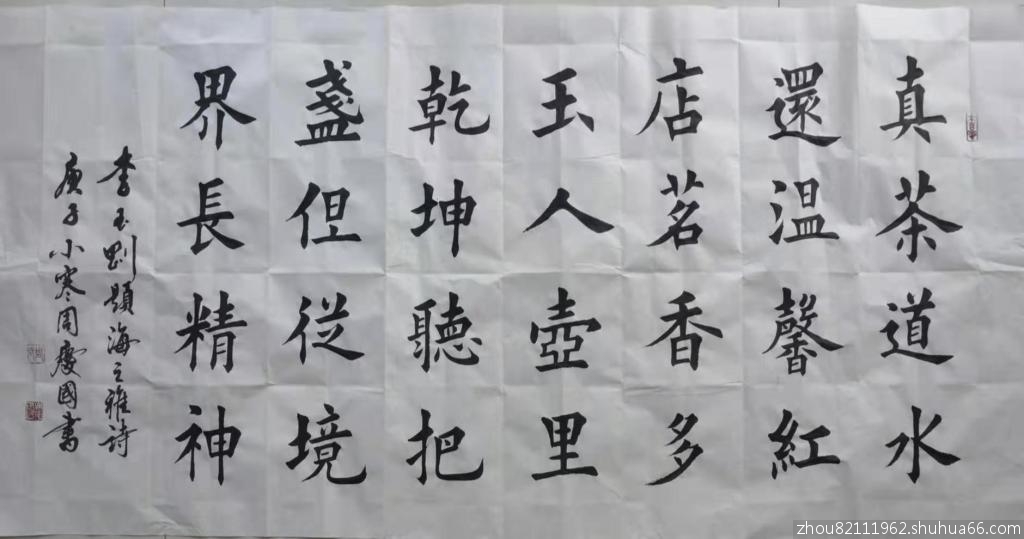 真茶道水
還温馨紅
店茗香多
玉人壺里
乾坤聽把
盞但從境
界長精神
李玉剛題海之雅詩
庚子小寒周慶國書
zhou82111962.shuhua66.com